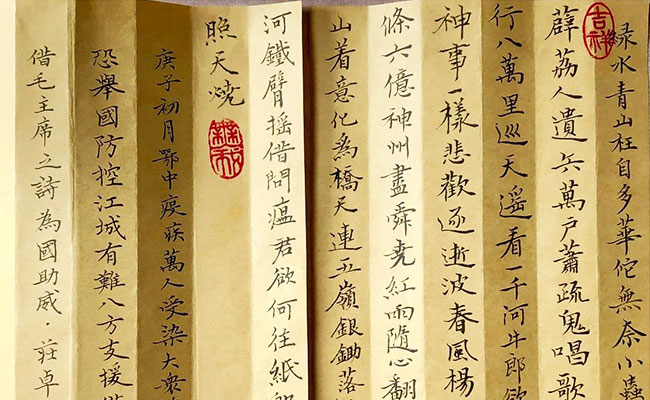 吉祥
緑水青山枉自多華佗無奈小蟲
薜荔人遺矢萬户蕭疏鬼唱歌
行八萬里巡天遥看一千河牛郎欲
神事一樣悲歡逐逝波春風楊
條六億神州盡舜堯紅雨隨心翻
山着意化為橋天連五嶺銀鋤落
河鐵臂摇借問瘟君欲何往紙
照天燒
庚子初月鄂中疫疾萬人受染大衆
恐舉國防控江城有難八方支援
借毛主席之詩為國助威·莊卓